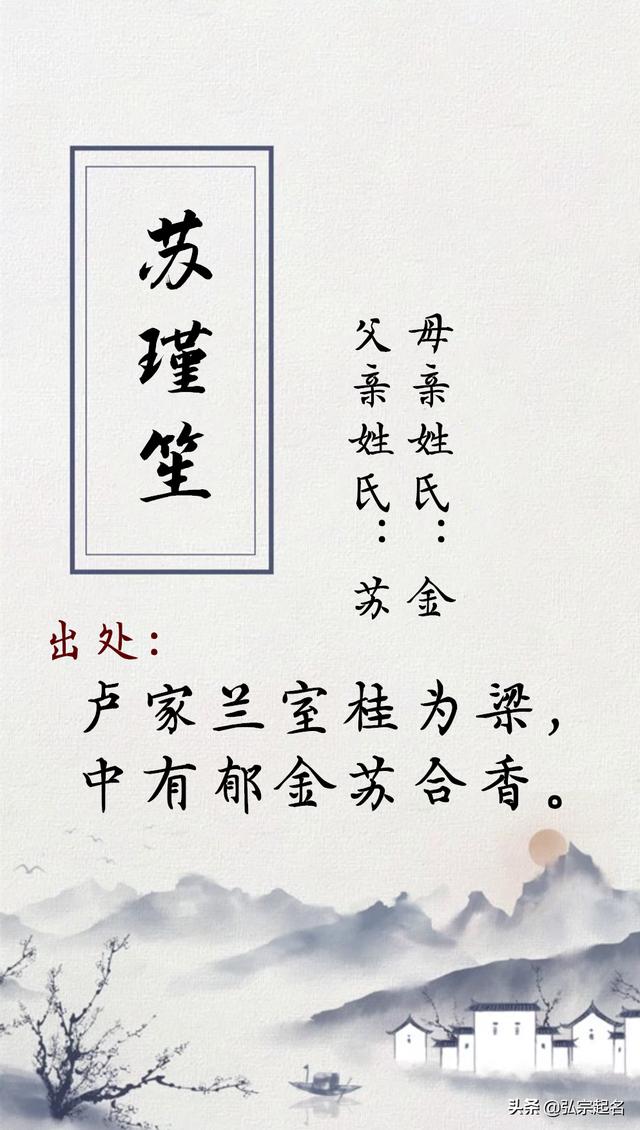 苏瑾笙
母亲姓氏：金
父亲姓氏：苏
出处：
卢家兰室桂为梁，
中有郁金苏合香。
头条 @弘宗起名